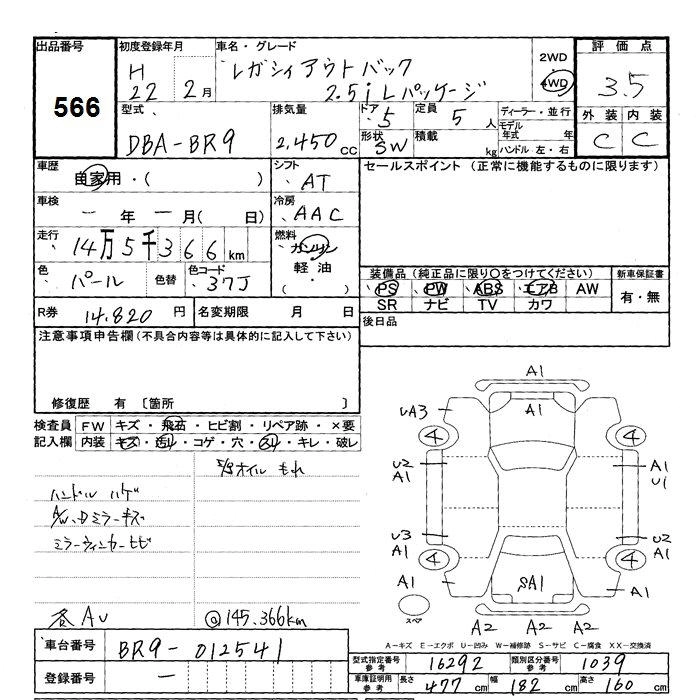 出品番号
566
初度登録年月
H
22 2月
車名・グレード
レガシィアウトバック
2.5i Lパッケージ
2WD
4WD
評価点
3.5
外装 内装
C C
型式
DBA-BR9
排気量
2,450 cc
ドア
5
定員
5 人
形状
SW
積載
kg
ディーラー・並行
モデル
年式 年
ハンドル 左・右
車歴
自家用・( )
シフト
AT
セールスポイント (正常に機能するものに限ります)
車検
ー 年 ー 月( 日)
冷房
AAC
走行
14万5千366km
燃料
ガソリン
軽油
・( )
色
パール
色替
色コード
37J
装備品 (純正品に限り○をつけてください)
PS PW ABS エアB AW
SR ナビ TV カワ
新車保証書
有・無
R券 14,820 円
名変期限 月 日
後日品
注意事項申告欄(不具合内容等は具体的に記入して下さい)
修復歴 有 〔箇所 〕
検査員
記入欄
FW キズ・飛石・ヒビ割・リペア跡・×要
内装 キズ・汚れ・コゲ・穴・スレ・キレ・破レ
オイル もれ
ハンドル ハゲ
A/W、Dミラーキズ
ミラーウィンカーヒビ
各AU
@145,366km
A1
A1
UA3
4 4
U2
A1
A1
U1
U3
A1
U2
A1
4 4
A1
SA1
A1
スペア
A2 A2 A2
A-キズ E-エクボ U-凹み W-補修跡 S-サビ C-腐食 XX-交換済
車台番号 BR9-012541
登録番号 ー
型式指定番号
参考
16292
類別区分番号
参考
1039
車庫証明用
参考
長さ 477 cm 幅 182 cm 高さ 160 cm